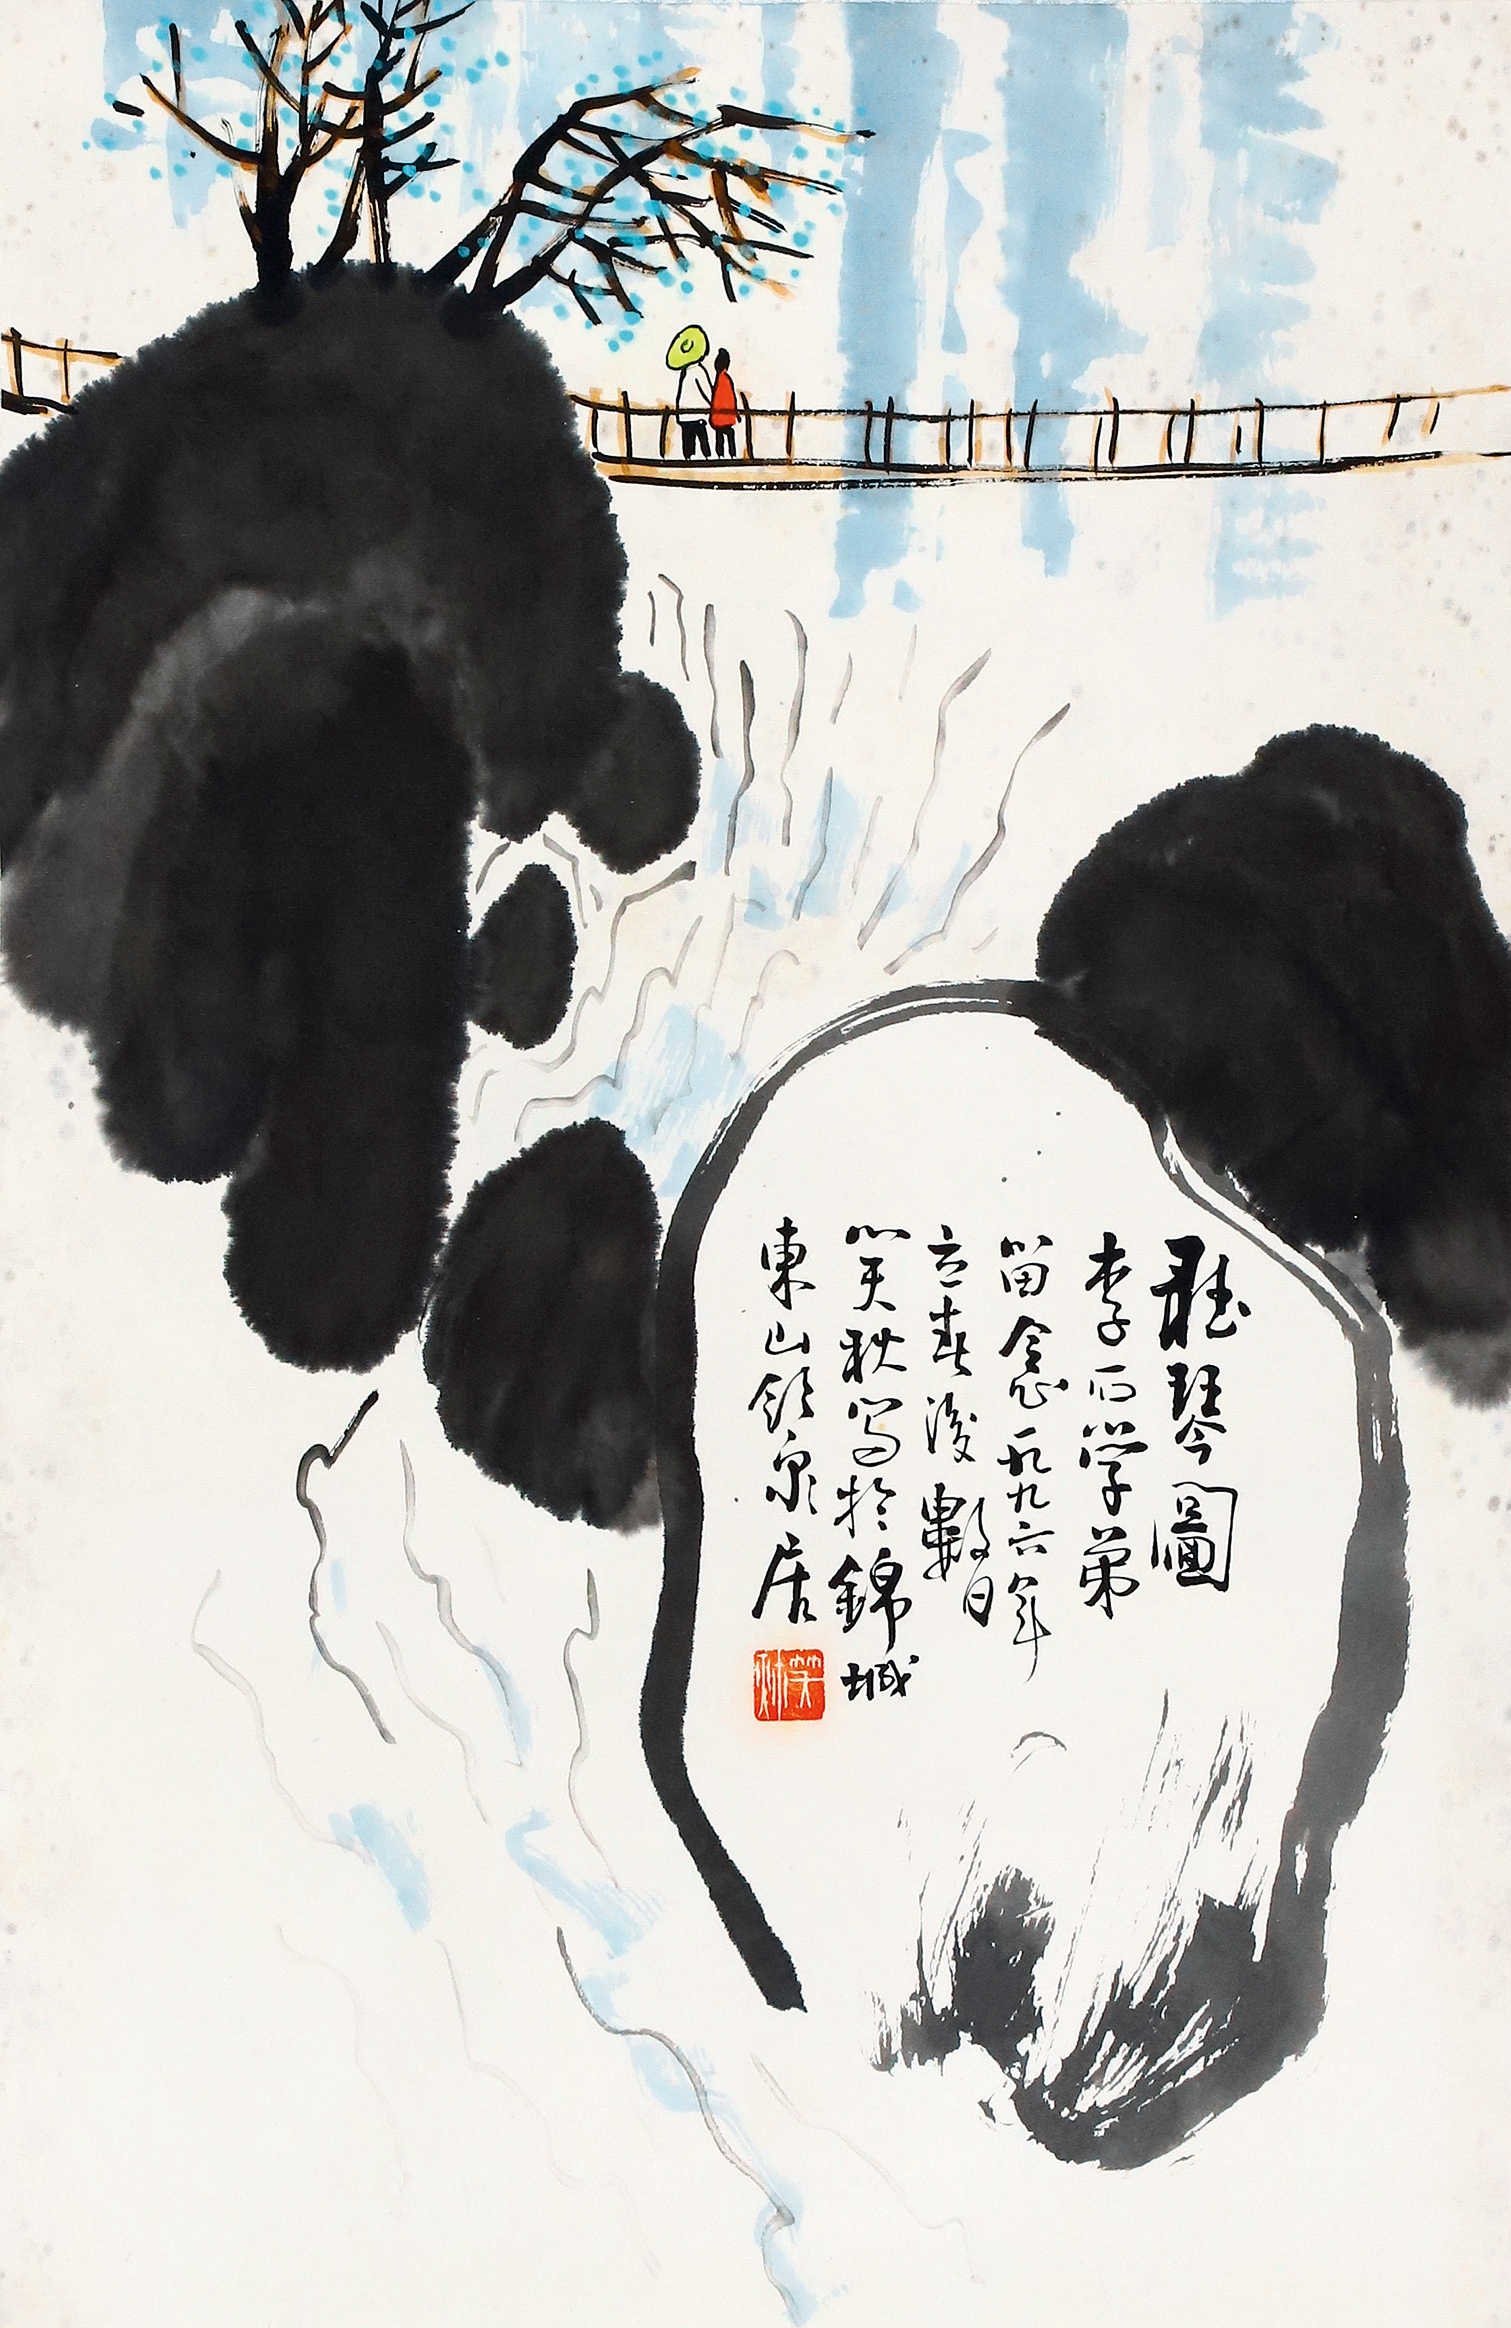 聽琴圖
李石学弟
留念一九九六年
立春後數日
笑秋写於錦城
東山領泉居
笑秋